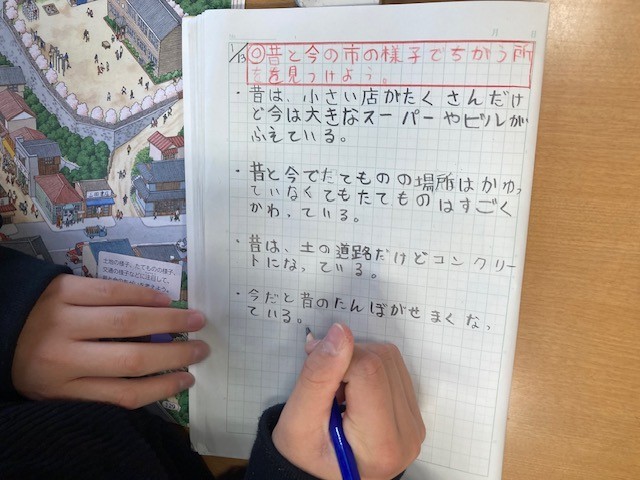 月 日
1/13
◎昔と今の市の様子でちがう所
を見つけよう。
・昔は、小さい店がたくさんだけ
ど今は大きなスーパーやビルが
ふえている。
・昔と今でたてものの場所はかわっ
ていなくてもたてものはすごく
かわっている。
・昔は、土の道路だけどコンクリー
トになっている。
・今だと昔のたんぼがせまくなっ
ている。
土地の様子、たてものの様子、
交通の様子などに注目して、